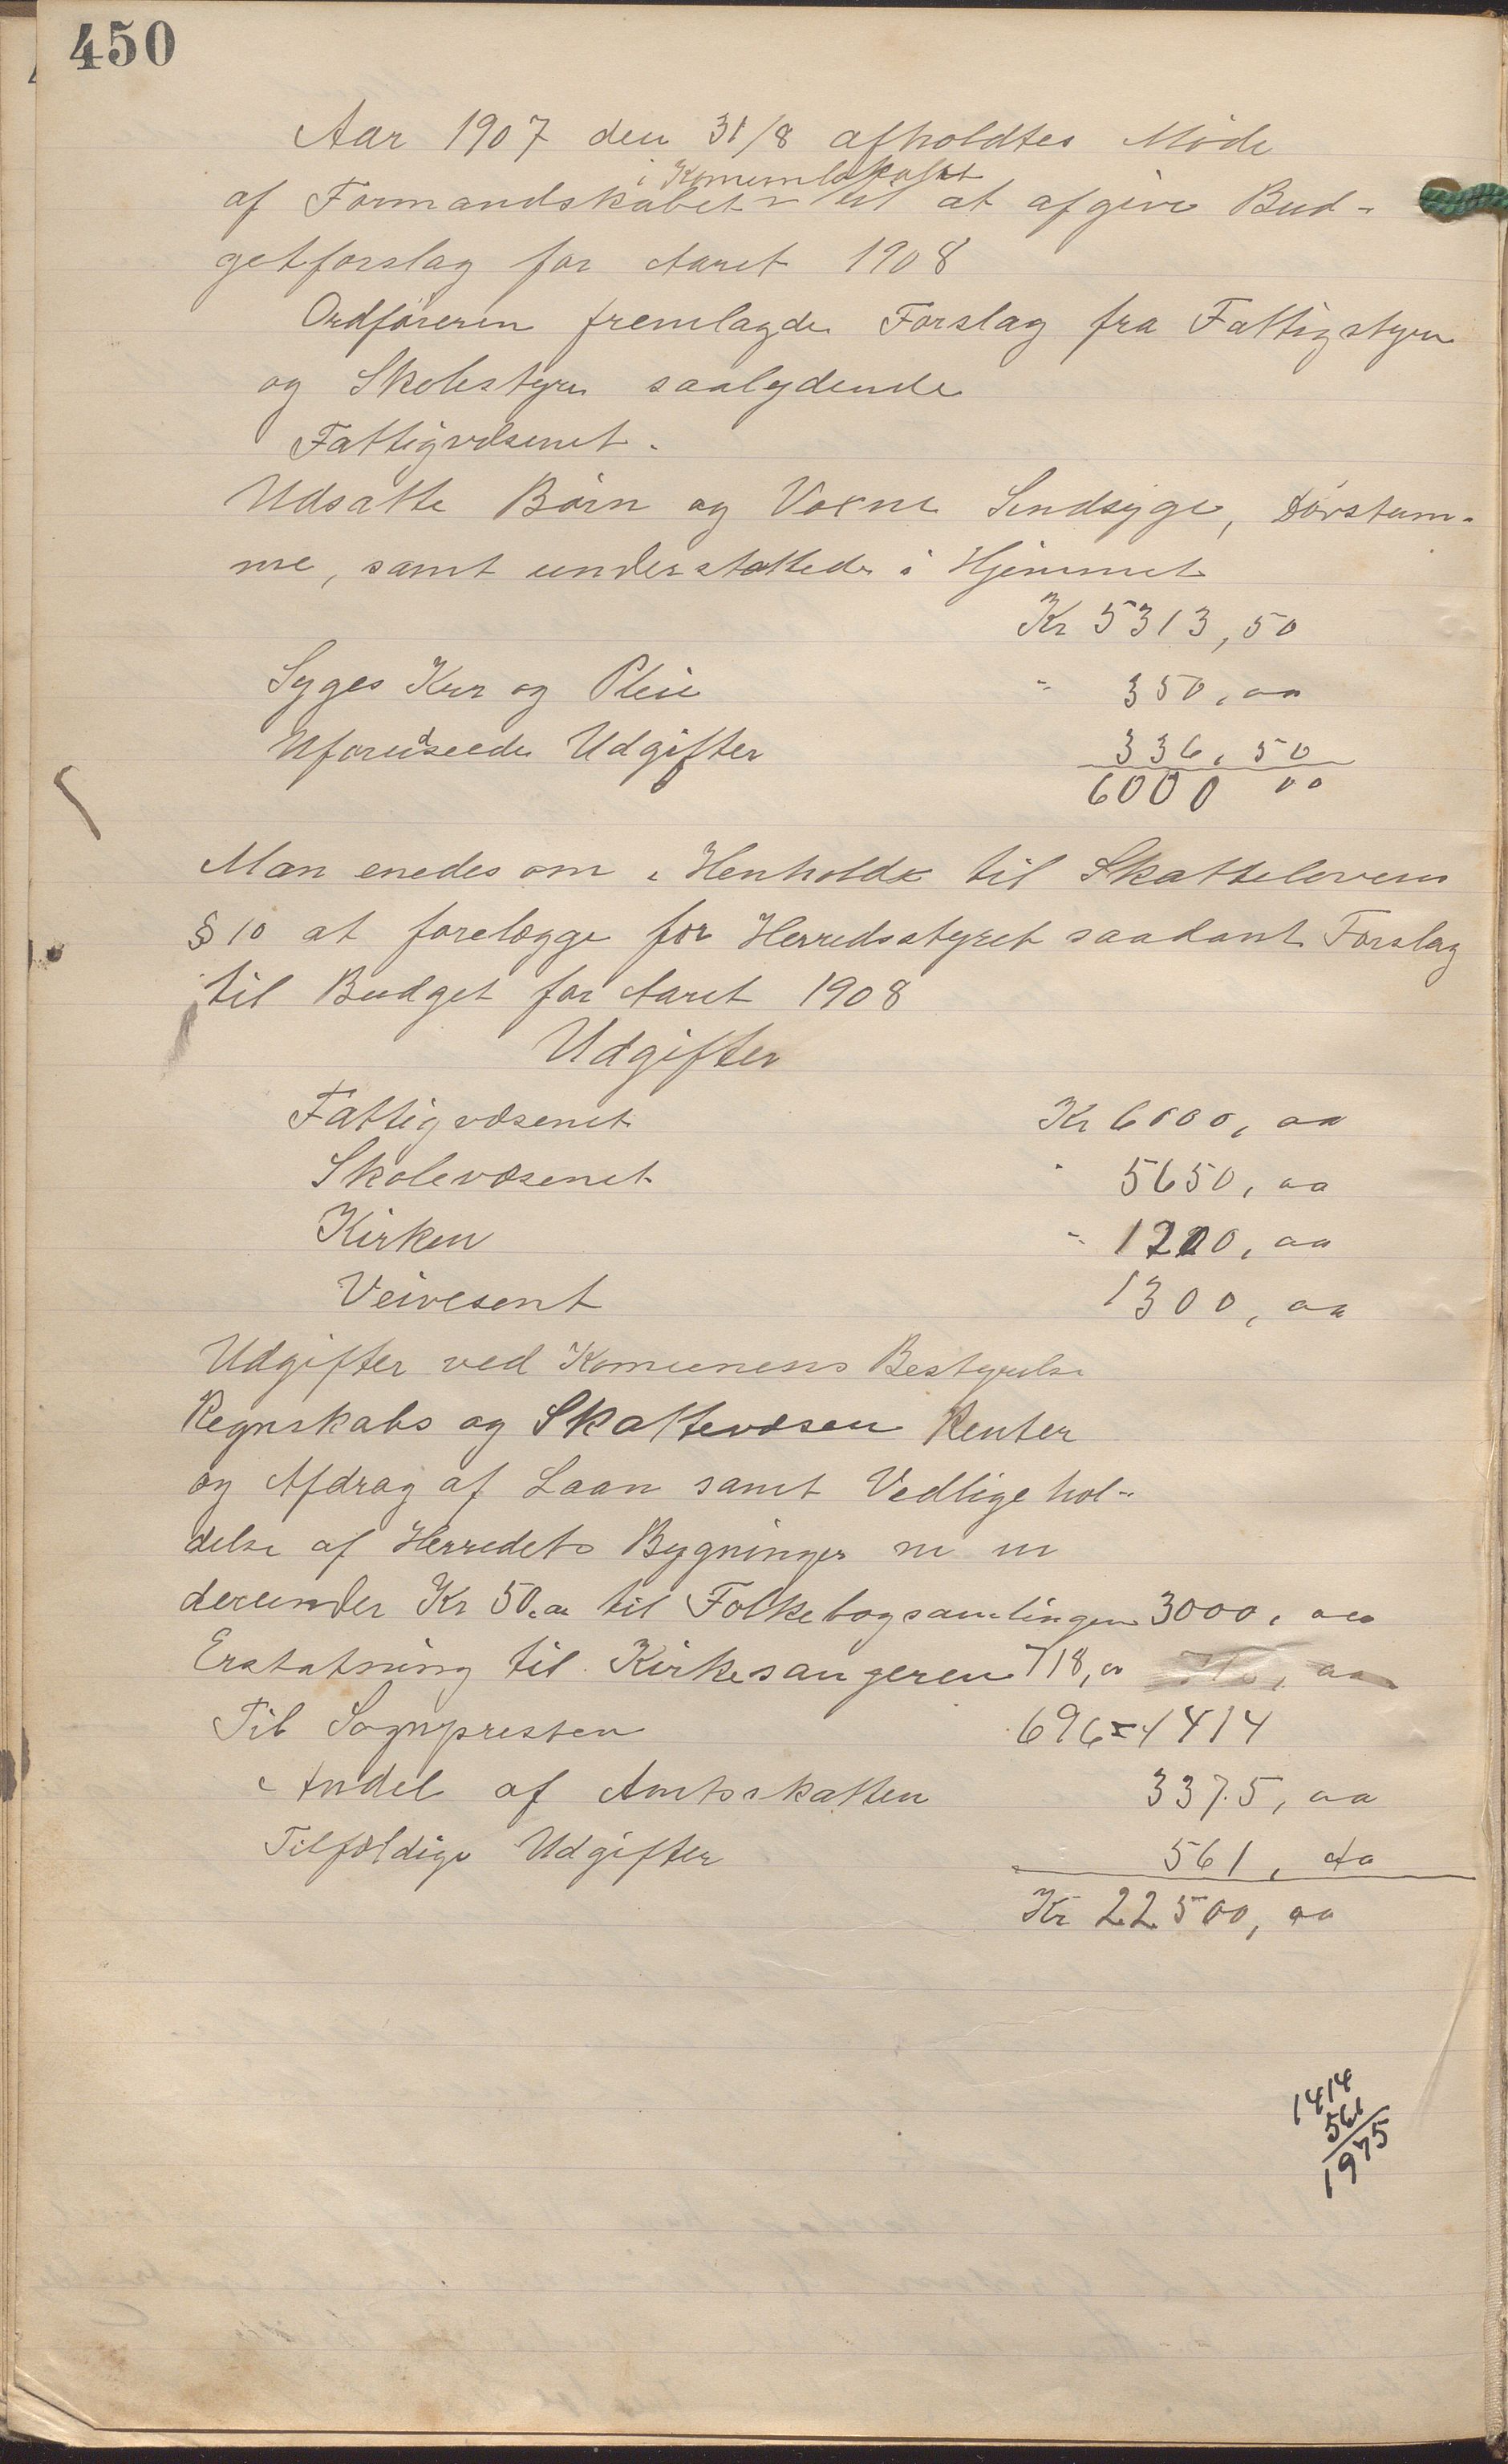 450
Aar 1907 den 31/8 afholdtes Møde
i Komunlokalet
af Formandskabet til at afgive Bud-
getforslag for Aaret 1908
Ordføreren fremlagde Forslag fra Fattigstyre
og Skolestyre saalydende
Fattigvæsenet.
Udsatte Børn og Voxne Sindsyge, Døvstum-
me, samt understøttede i Hjemmet
Kr 5313,50
Syges Kur og Pleie " 350,00
Uforudseede Udgifter 336,50
6000 00
Man enedes om i Henholdt til Skattelovens
§ 10 at forelægge for Herredsstyret saadant Forslag
til Budget for Aaret 1908
Udgifter
Fattigvæsenet Kr 6000,00
Skolevæsenet " 5650,00
Kirken " 1200,00
Veivesent 1300,00
Udgifter ved Komunens Bestyrelse
Regnskabs og Skattevæsen Renter
og Afdrag af Laan samt Vedligehol-
delse af Herredets Bygninger m m
derunder Kr 50,00 til Folkebogsamlingen 3000,00
Erstatning til Kirkesangeren 718,00
Til Sognpresten 696 = 1414
Andel af Amtsskatten 3375,00
Tilfældige Udgifter 561,00
Kr 22500,00
1414
561
1975